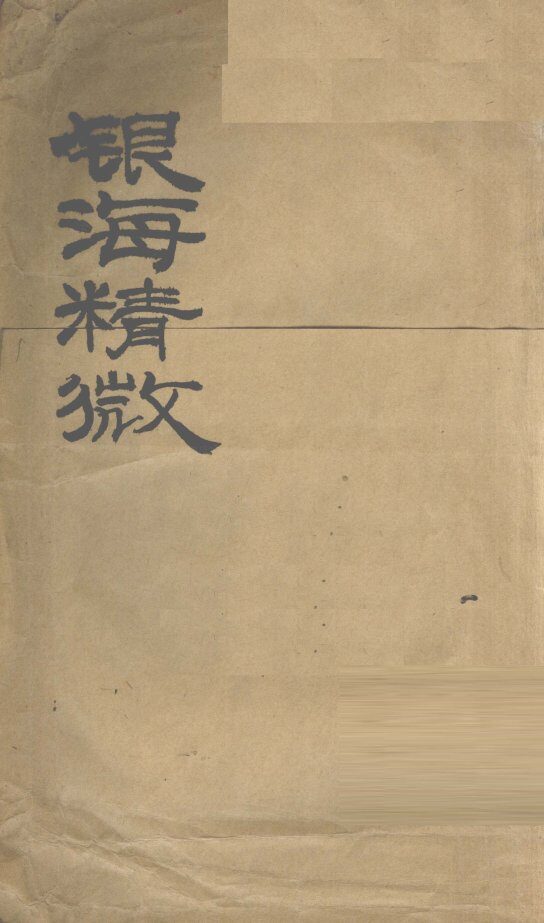 銀海精微